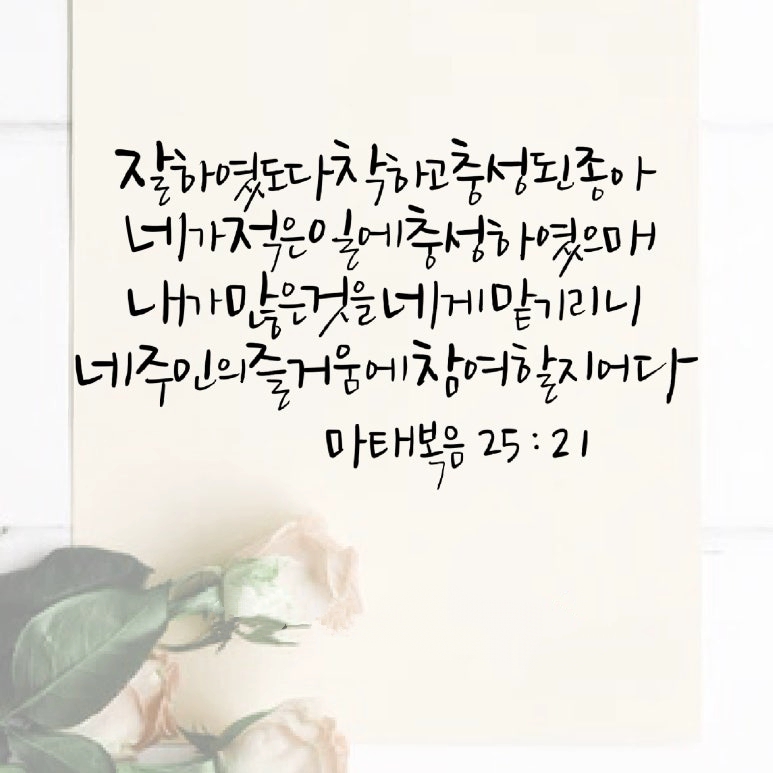 잘하였도다 착하고 충성된 종아
네가 적은 일에 충성하였으매
내가 많은 것을 네게 맡기리니
네 주인의 즐거움에 참여할지어다
마태복음 25:21